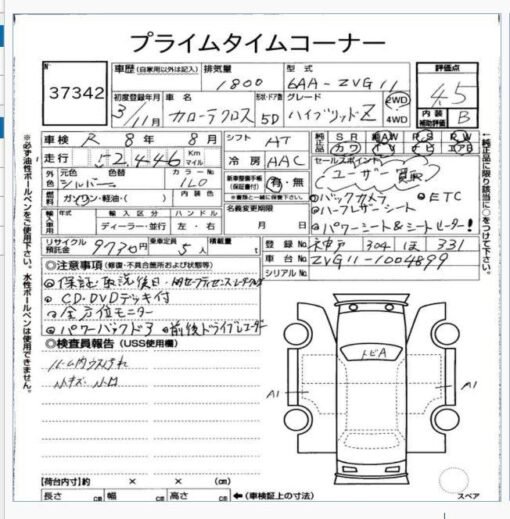 プライムタイムコーナー
N
37342
車歴 (自家用以外は記入)
排気量
型式
評価点
1800
6AA-ZVG11
4.5
初度登録年月
車名
形状・ドア数
グレード
3/11月
カローラクロス
5D
ハイブリッドZ
2WD
4WD
内装
補助評価
B
車検 R 8年 8月
シフト AT
純正品
SR
AW
PS
PW
カワ
TV
ナビ
エアB
走行 52,446 Km マイル
冷房 AAC
セールスポイント
ユーザー買取
元色
色替
カラーNo
外色
シルバー
1L0
新車整備手帳
(保証書付)
有・無
※一緒に保管して下さい。
燃料
ガソリン・軽油・( )
内装色
名義変更期限
月 日
バックカメラ
ETC
ハーフレザーシート
パワーシート&シートヒーター!
輸入車
年式
輸入区分
ハンドル
ディーラー・並行
左・右
リサイクル預託金
9730円
乗車定員
5人
積載量
t
登録No 神戸 304 ほ 331
車台No ZVG11-1004899
シリアルNo
◎注意事項 (修復・不具合箇所および状態等)
CD・DVDデッキ付
全方位モニター
パワーバックドア
前後ドライブレコーダー
◎検査員報告 (USS使用欄)
トビA
A1
A1
【荷台内寸】約 × × (cm)
長さ cm
幅 cm
高さ cm
←(車検証上の寸法)
スペア
※必ず油性ボールペンをご使用下さい。水性ボールペンは使用できません。
←純正品に限り該当に○をつけて下さい。